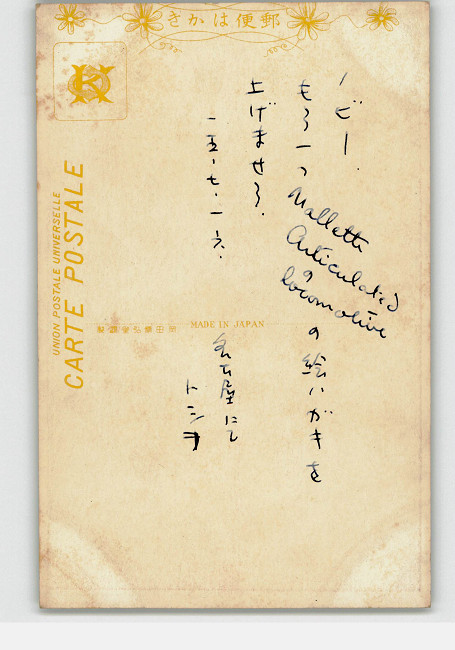 郵便はかき
ノビー.
もう一つ Mallette
Articulated
の
locomotive の絵ハガキを
上げませう.
一五・七・一六.
名古屋にて
トシヲ
UNION POSTALE UNIVERSELLE
CARTE POSTALE
MADE IN JAPAN